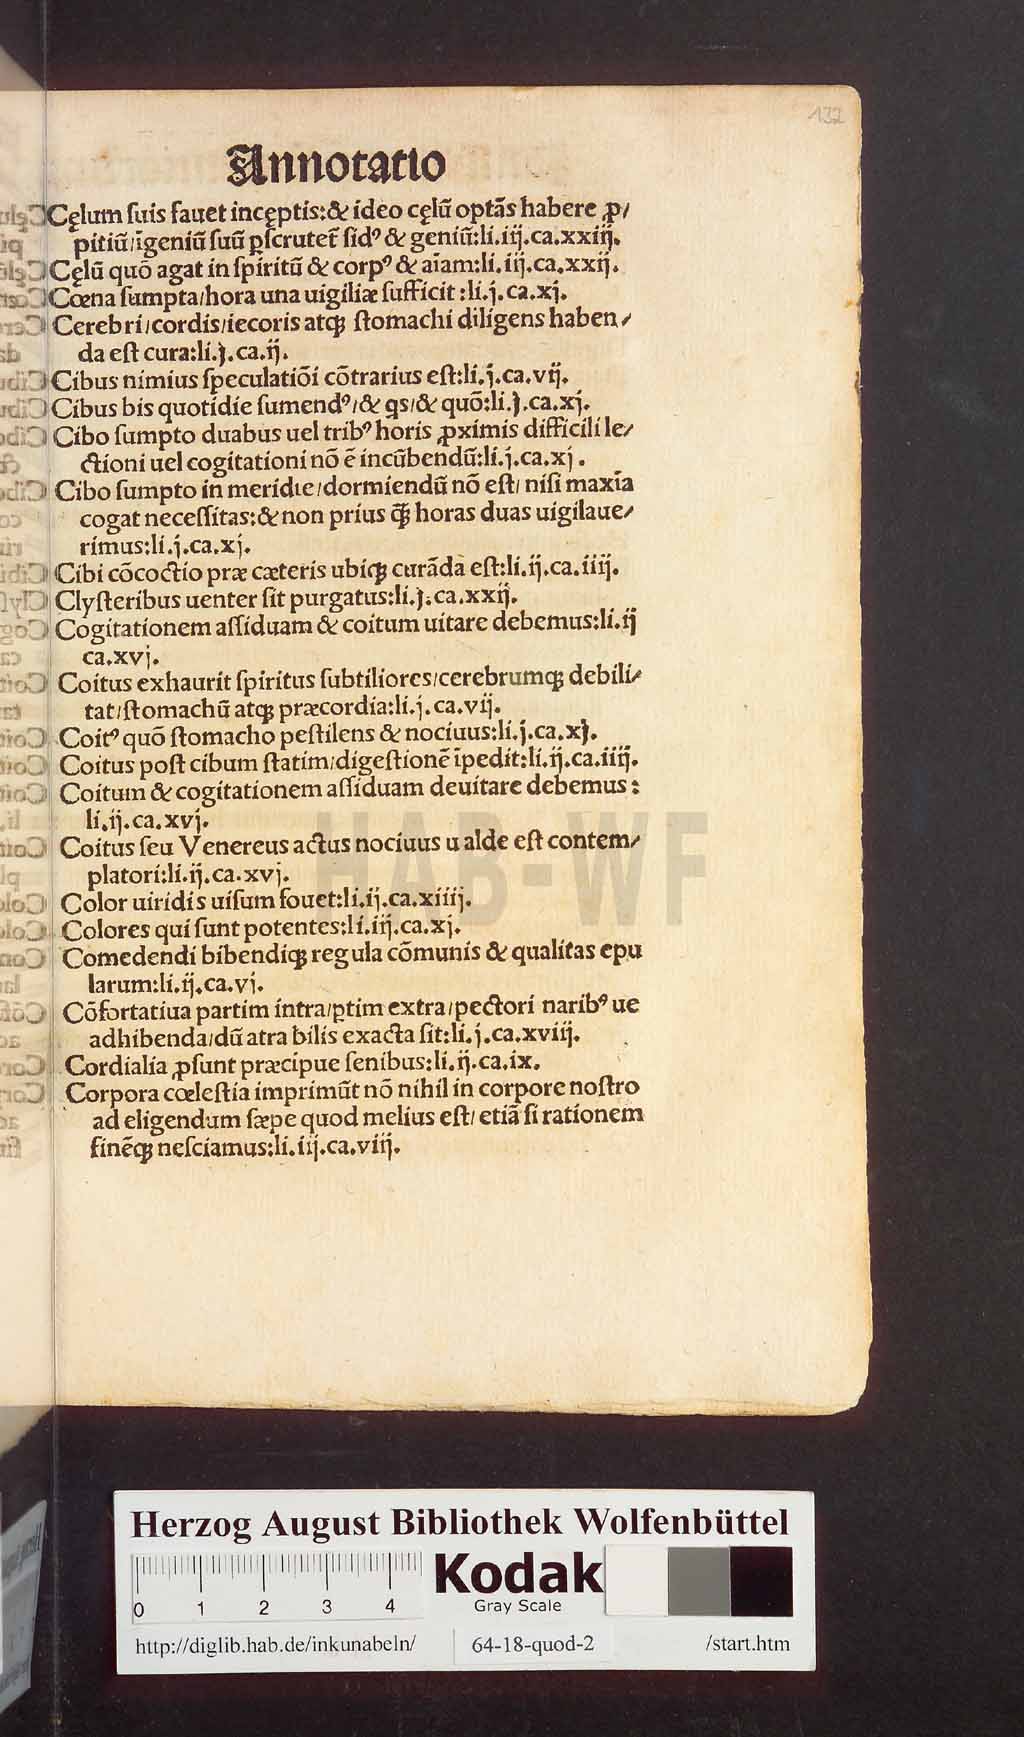 132
Annotatio
Cęlum suis fauet incęptis:& ideo cęlū optās habere ꝓ/
pitiū/īgeniū suū ꝑscrutet̄ sidꝰ & geniū:li.iij.ca.xxiij.
Cęlū quō agat in spiritū & corpꝰ & aīam:li.iij.ca.xxij.
Cœna sumpta/hora una uigiliæ sufficit:li.j.ca.xj.
Cerebri/cordis/iecoris atqꝫ stomachi diligens haben/
da est cura:li.j.ca.ij.
Cibus nimius speculatiōi cōtrarius est:li.j.ca.vij.
Cibus bis quotidie sumendꝰ/& qs/& quō:li.j.ca.xj.
Cibo sumpto duabus uel tribꝰ horis ꝓximis difficili le/
ctioni uel cogitationi nō ē incūbendū:li.j.ca.xj.
Cibo sumpto in meridie/dormiendū nō est/ nisi maxīa
cogat necessitas:& non prius q̄ꝫ horas duas uigilaue/
rimus:li.j.ca.xj.
Cibi cōcoctio præ cæteris ubiqꝫ curāda est:li.ij.ca.iiij.
Clysteribus uenter sit purgatus:li.j.ca.xxij.
Cogitationem assiduam & coitum uitare debemus:li.ij
ca.xvj.
Coitus exhaurit spiritus subtiliores/cerebrumqꝫ debili/
tat/stomachū atqꝫ præcordia:li.j.ca.vij.
Coitꝰ quō stomacho pestilens & nociuus:li.j.ca.xj.
Coitus post cibum statim/digestionē īpedit:li.ij.ca.iiij.
Coitum & cogitationem assiduam deuitare debemus:
li.ij.ca.xvj.
Coitus seu Venereus actus nociuus ualde est contem/
platori:li.ij.ca.xvj.
Color uiridis uisum fouet:li.ij.ca.xiiij.
Colores qui sunt potentes:li.iij.ca.xj.
Comedendi bibendiqꝫ regula cōmunis & qualitas epu
larum:li.ij.ca.vj.
Cōfortatiua partim intra/ꝑtim extra/pectori naribꝰ ue
adhibenda/dū atra bilis exacta sit:li.j.ca.xviij.
Cordialia ꝓsunt præcipue senibus:li.ij.ca.ix.
Corpora cœlestia imprimūt nō nihil in corpore nostro
ad eligendum sæpe quod melius est/ etiā si rationem
finēqꝫ nesciamus:li.iij.ca.viij.
HAB-WF
Herzog August Bibliothek Wolfenbüttel
0 1 2 3 4
Kodak
Gray Scale
http://diglib.hab.de/inkunabeln/ 64-18-quod-2 /start.htm